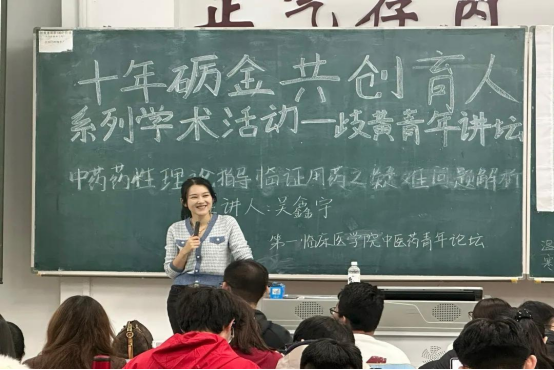 正气存内
十年砺金 共创育人
系列学术活动—歧黄青年讲坛
中药药性理论指导临证用药之疑难问题解析
讲人:吴鑫宇
第一临床医学院中医药青年论坛